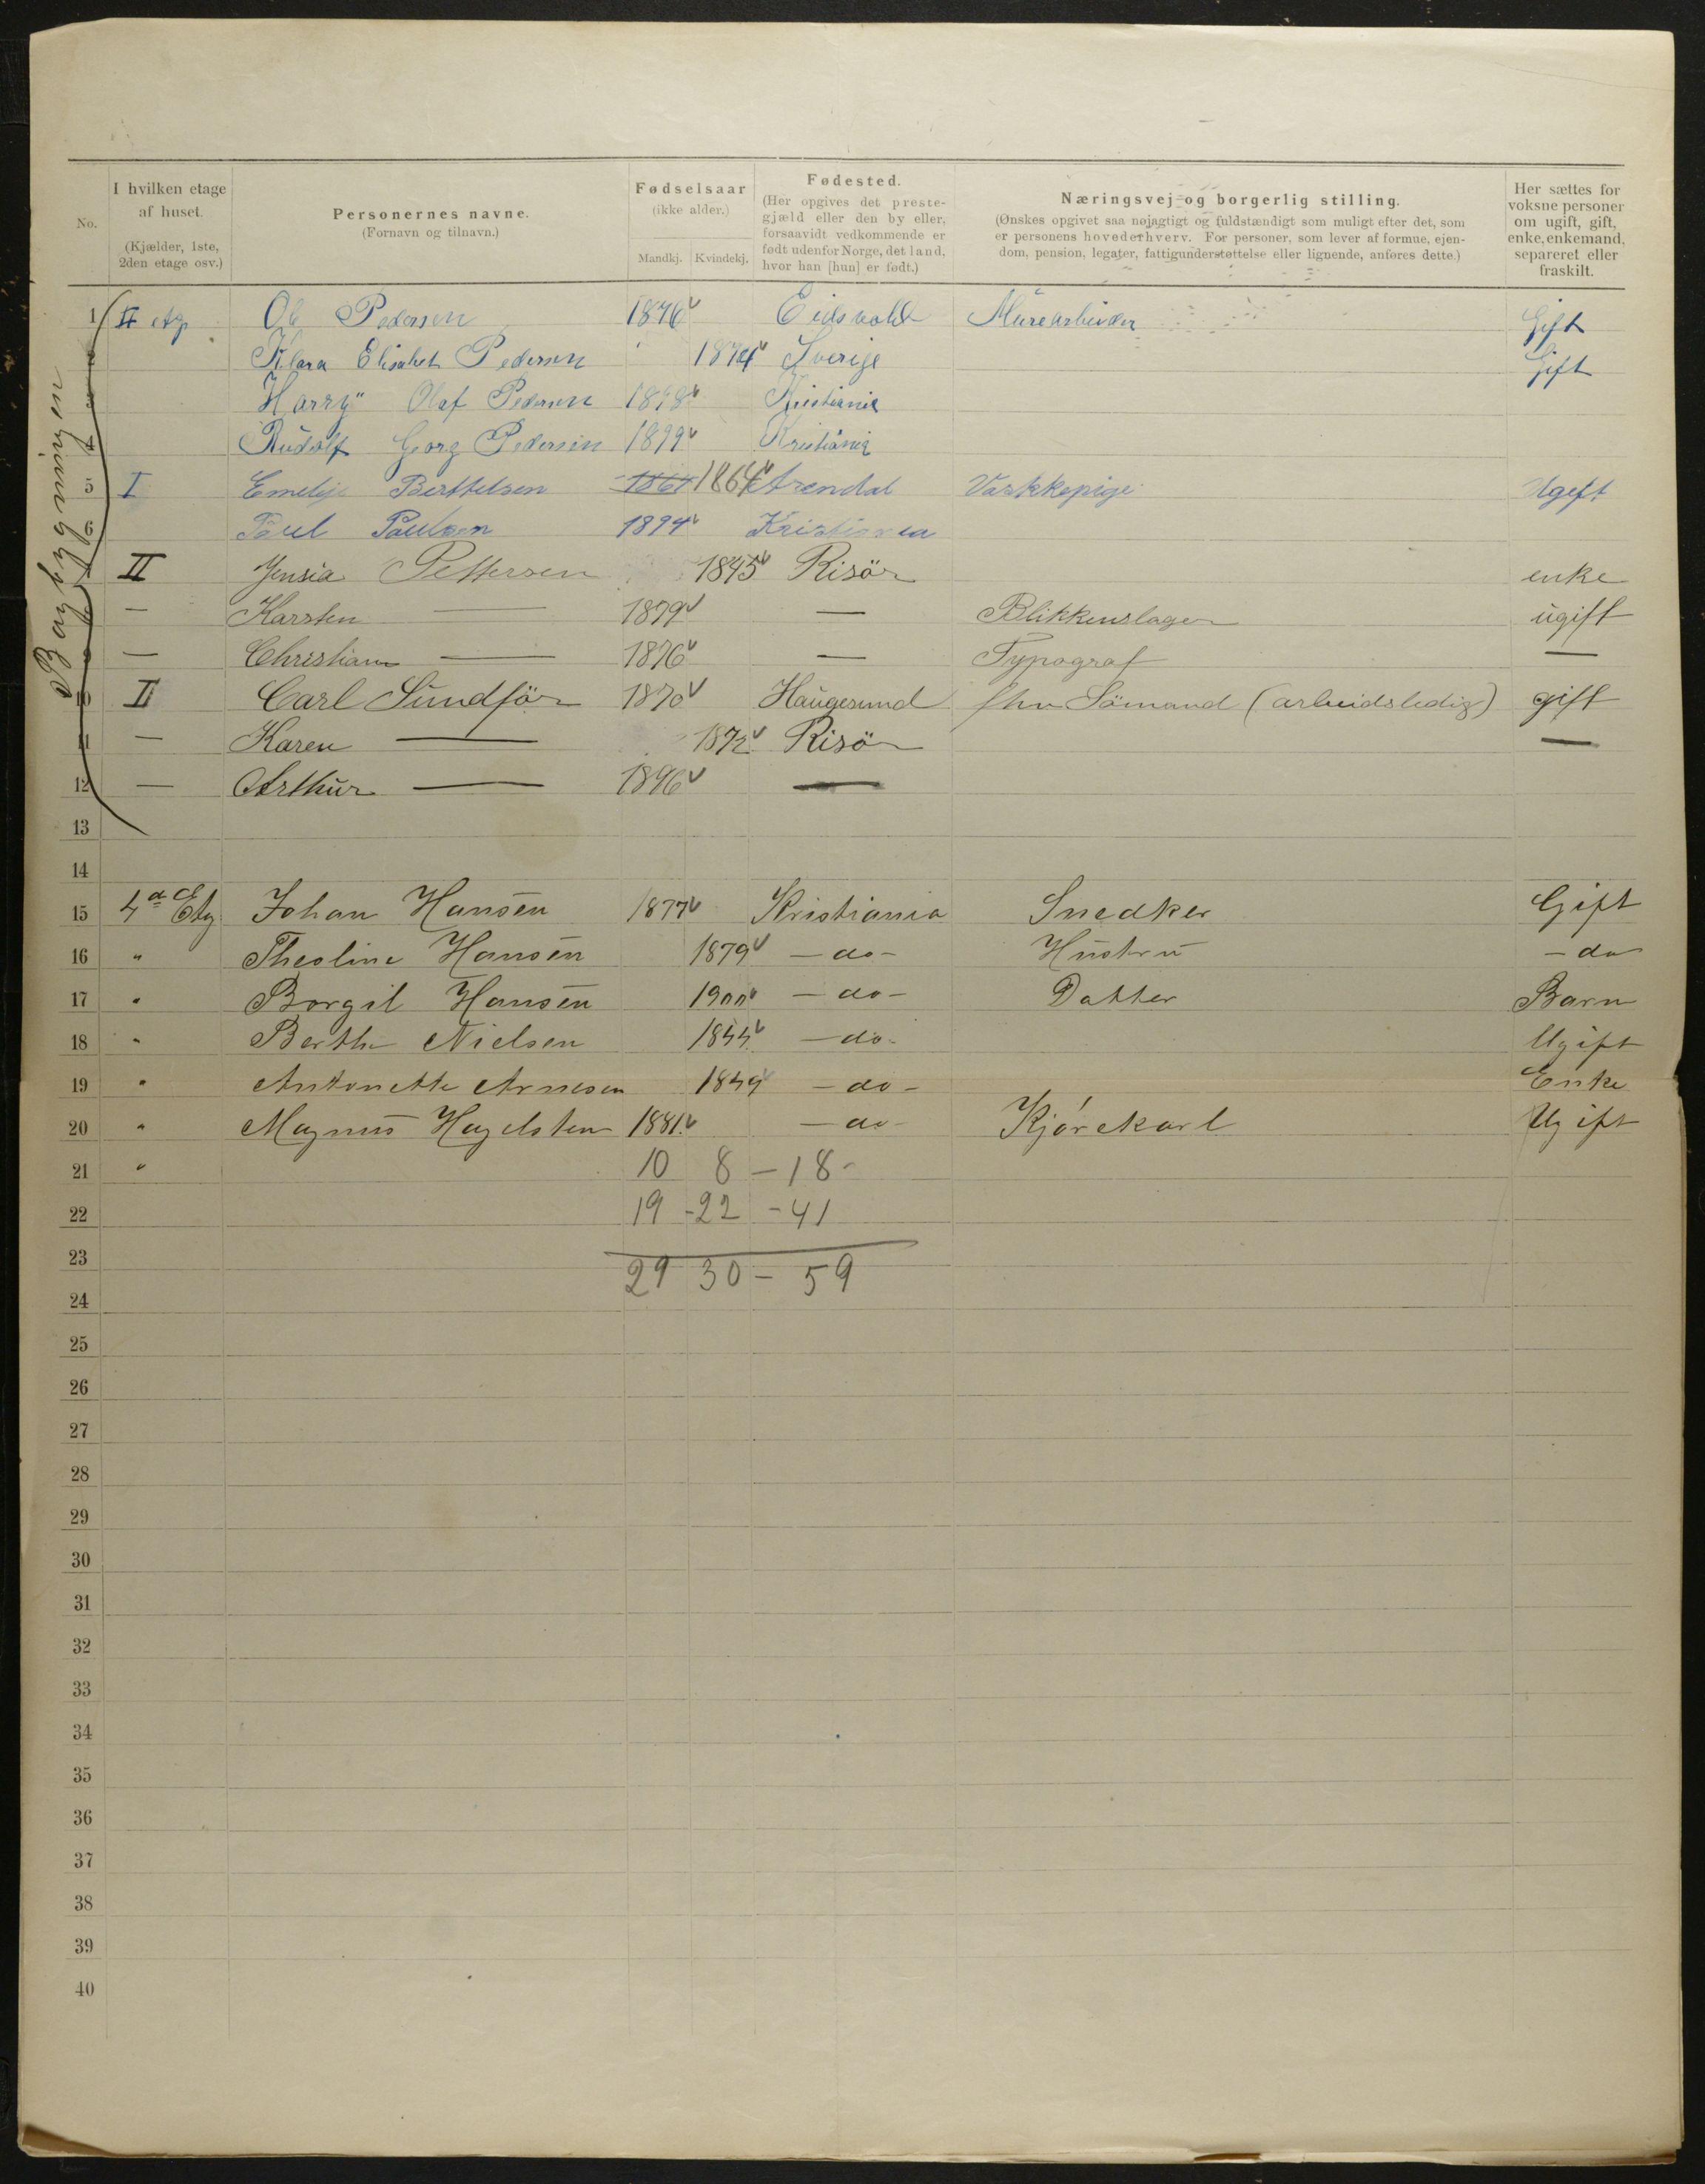 No.
I hvilken etage af huset.
(Kjælder, 1ste, 2den etage osv.)
Personernes navne.
(Fornavn og tilnavn.)
Fødselsaar
(ikke alder.)
Mandkj. Kvindekj.
Fødested.
(Her opgives det prestegjæld eller den by eller, forsaavidt vedkommende er født udenfor Norge, det land, hvor han [hun] er født.)
Næringsvej og borgerlig stilling.
(Ønskes opgivet saa nøjagtigt og fuldstændigt som muligt efter det, som er personens hovederhverv. For personer, som lever af formue, ejendom, pension, legater, fattigunderstøttelse eller lignende, anføres dette.)
Her sættes for voksne personer om ugift, gift, enke, enkemand, separeret eller fraskilt.
1 II etg Ole Pedersen 1876 Eidsvold Murearbeider Gift
2 Klara Elisabet Pedersen 1874 Sverige Gift
3 Harry Olaf Pedersen 1898 Kristiania
4 Rudolf Georg Pedersen 1899 Kristiania
5 I Emelije Berthelsen 1864 1864 Arendal Vaskkepige Ugift
6 Paul Paulsen 1894 Kristiania
7 II Jensia Pettersen 1845 Risör enke
8 — Karsten — 1879 — Blikkenslager ugift
9 — Christian — 1876 — Typograf —
10 II Carl Sundför 1870 Haugesund fhv Sömand (arbeidsledig) gift
11 — Karen — 1872 Risör —
12 — Arthur — 1896 —
13
14
15 4de Etg Johan Hansen 1877 Kristiania Snedker Gift
16 " Theoline Hansen 1879 — do — Hustru — do
17 " Borgil Hansen 1900 — do — Datter Barn
18 " Berthe Nielsen 1844 — do — Ugift
19 " Antonette Arnesen 1849 — do — Enke
20 " Magnus Hagelsten 1881 — do — Kjørekarl Ugift
21 " 10 8 — 18 -
22 19 - 22 - 41
23
24 29 30 — 59
25
26
27
28
29
30
31
32
33
34
35
36
37
38
39
40